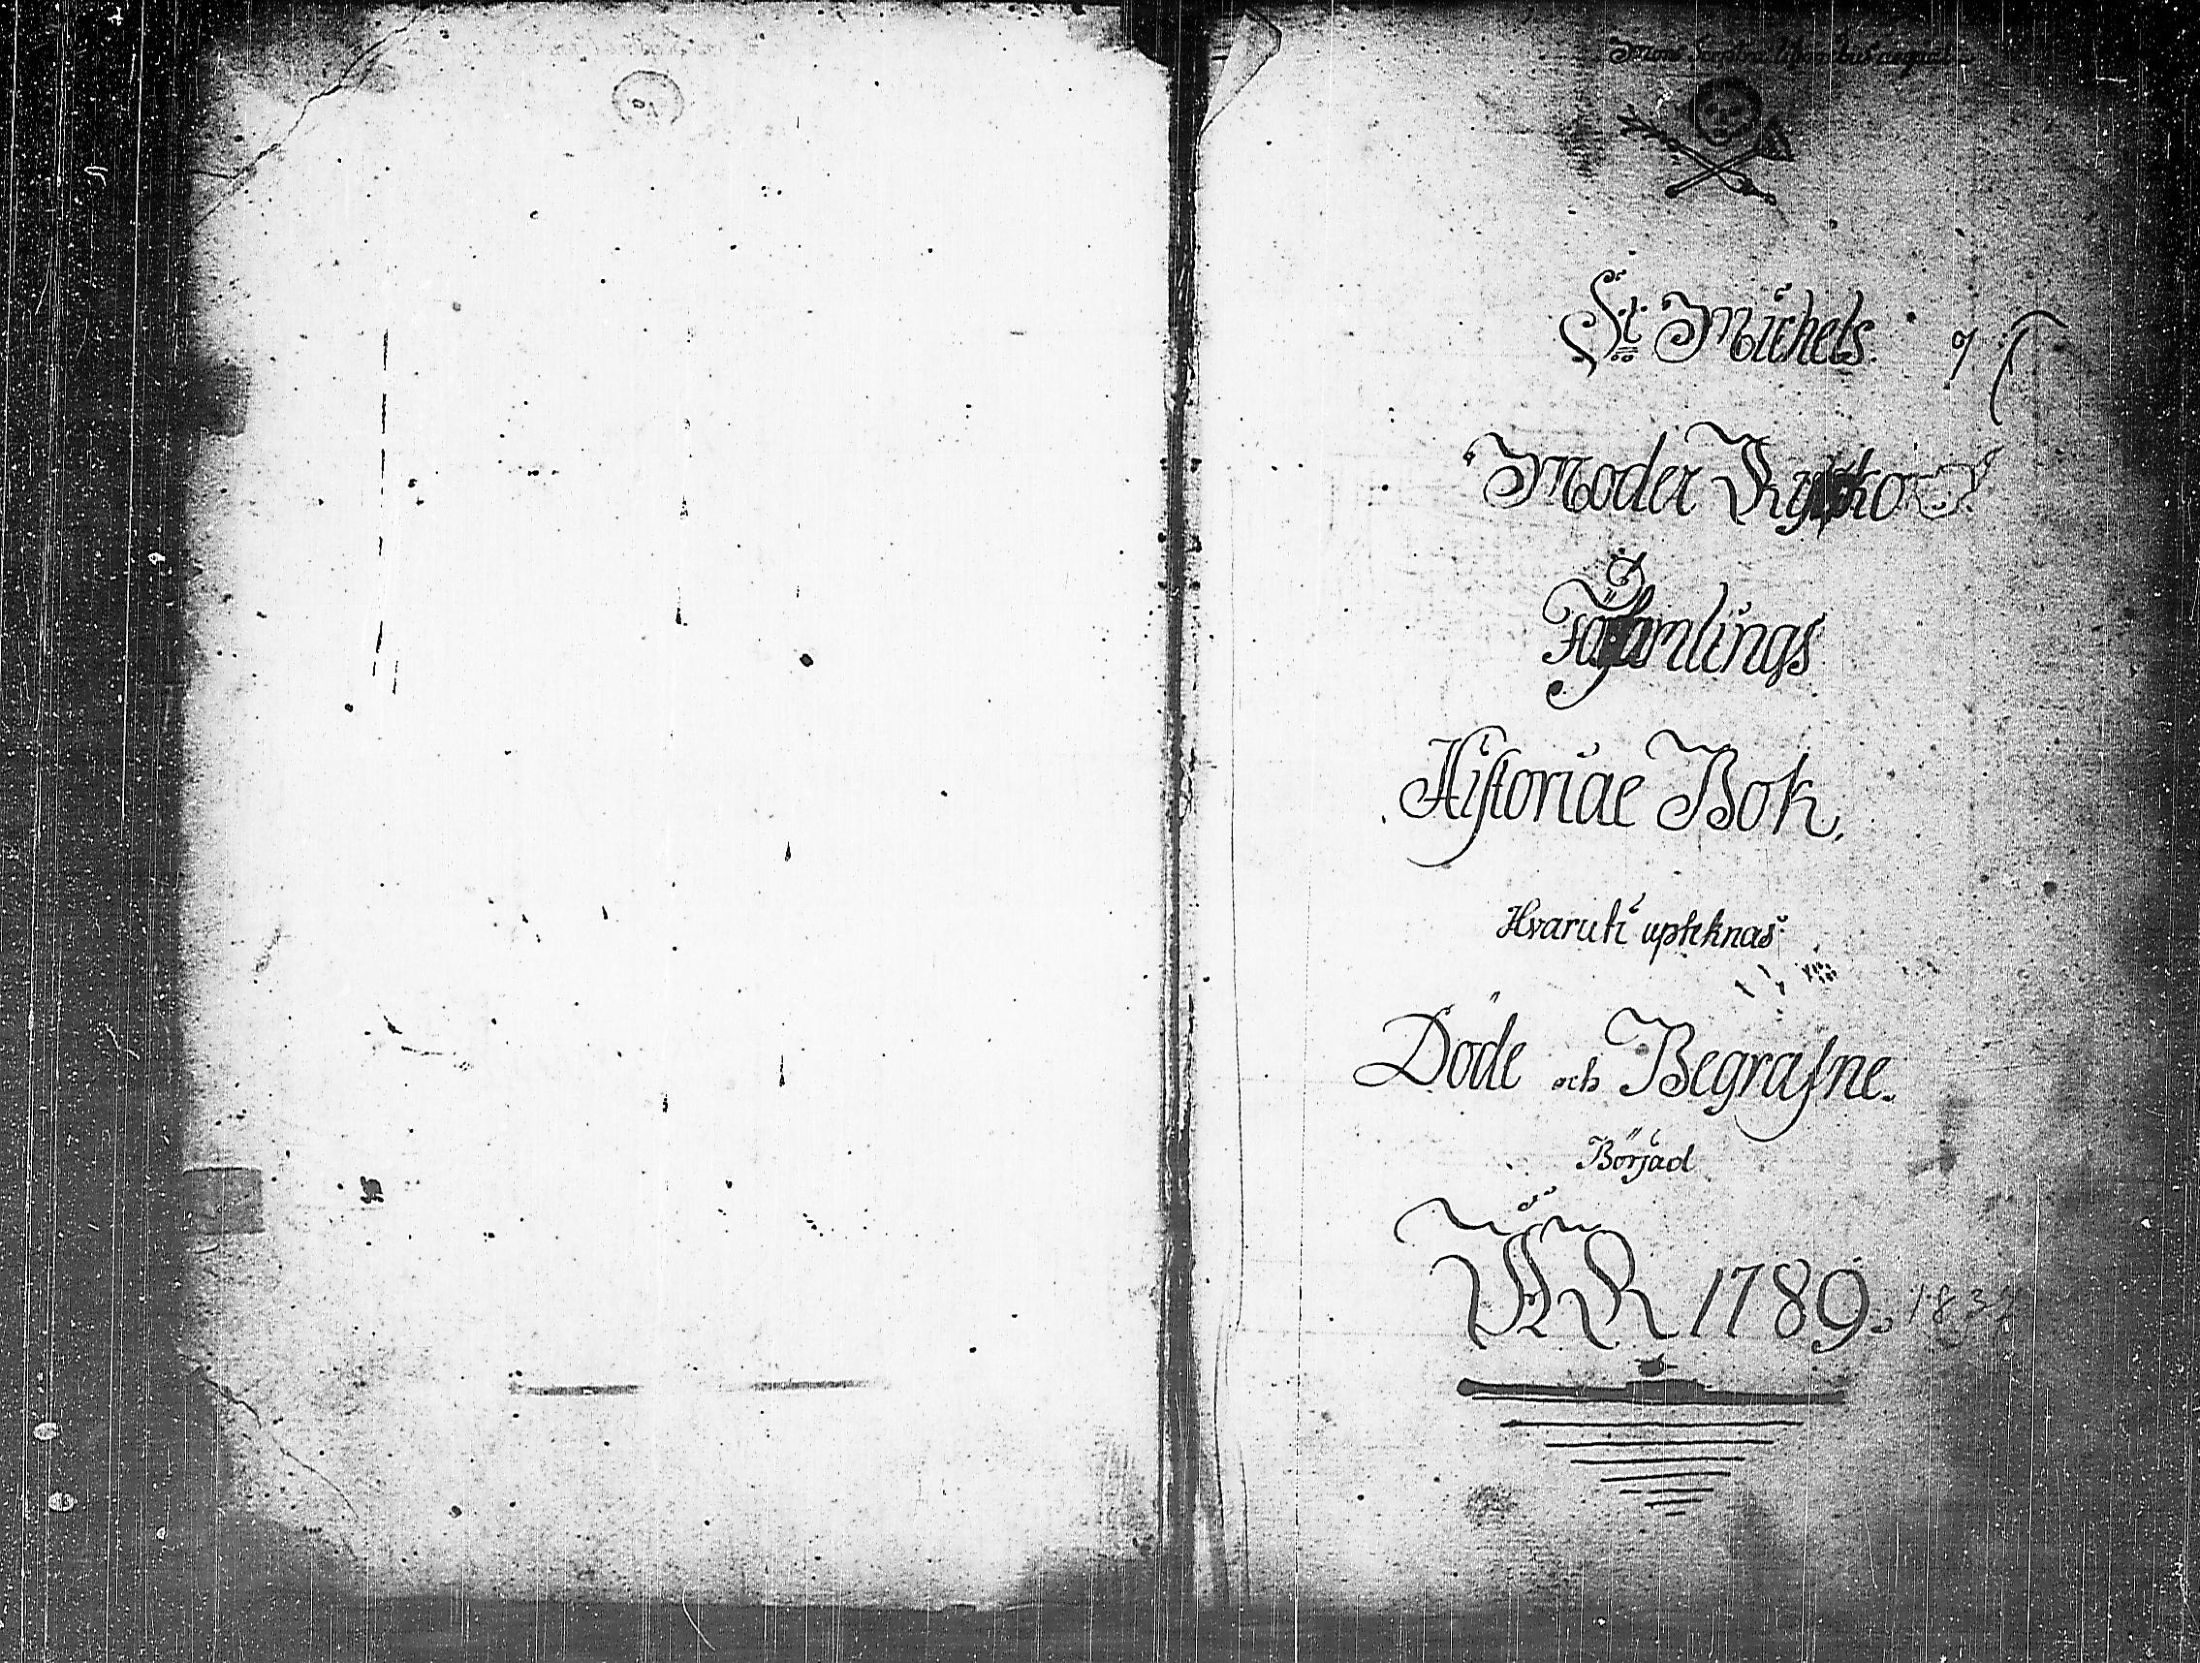 St Michels.
Moder Kyrko
Församlings
Historiae Bok,
Hvaruti upteknas
Döde och Begrafne.
Börjad
ÅR 1789. 1837